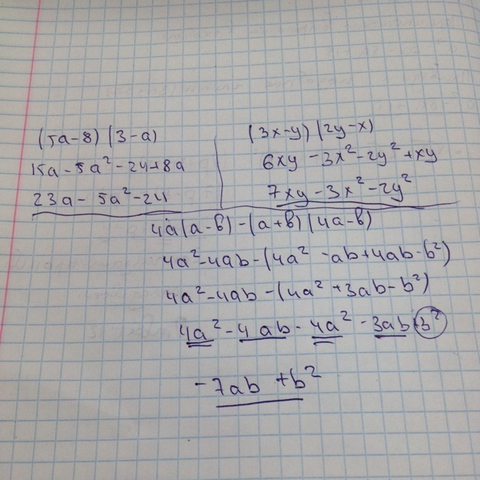 (5a-8)(3-a)
15a-5a²-24+8a
23a-5a²-24
(3x-y)(2y-x)
6xy-3x²-2y²+xy
7xy-3x²-2y²
4a(a-b)-(a+b)(4a-b)
4a²-4ab-(4a²-ab+4ab-b²)
4a²-4ab-(4a²+3ab-b²)
4a²-4ab-4a²-3ab+b²
-7ab+b²